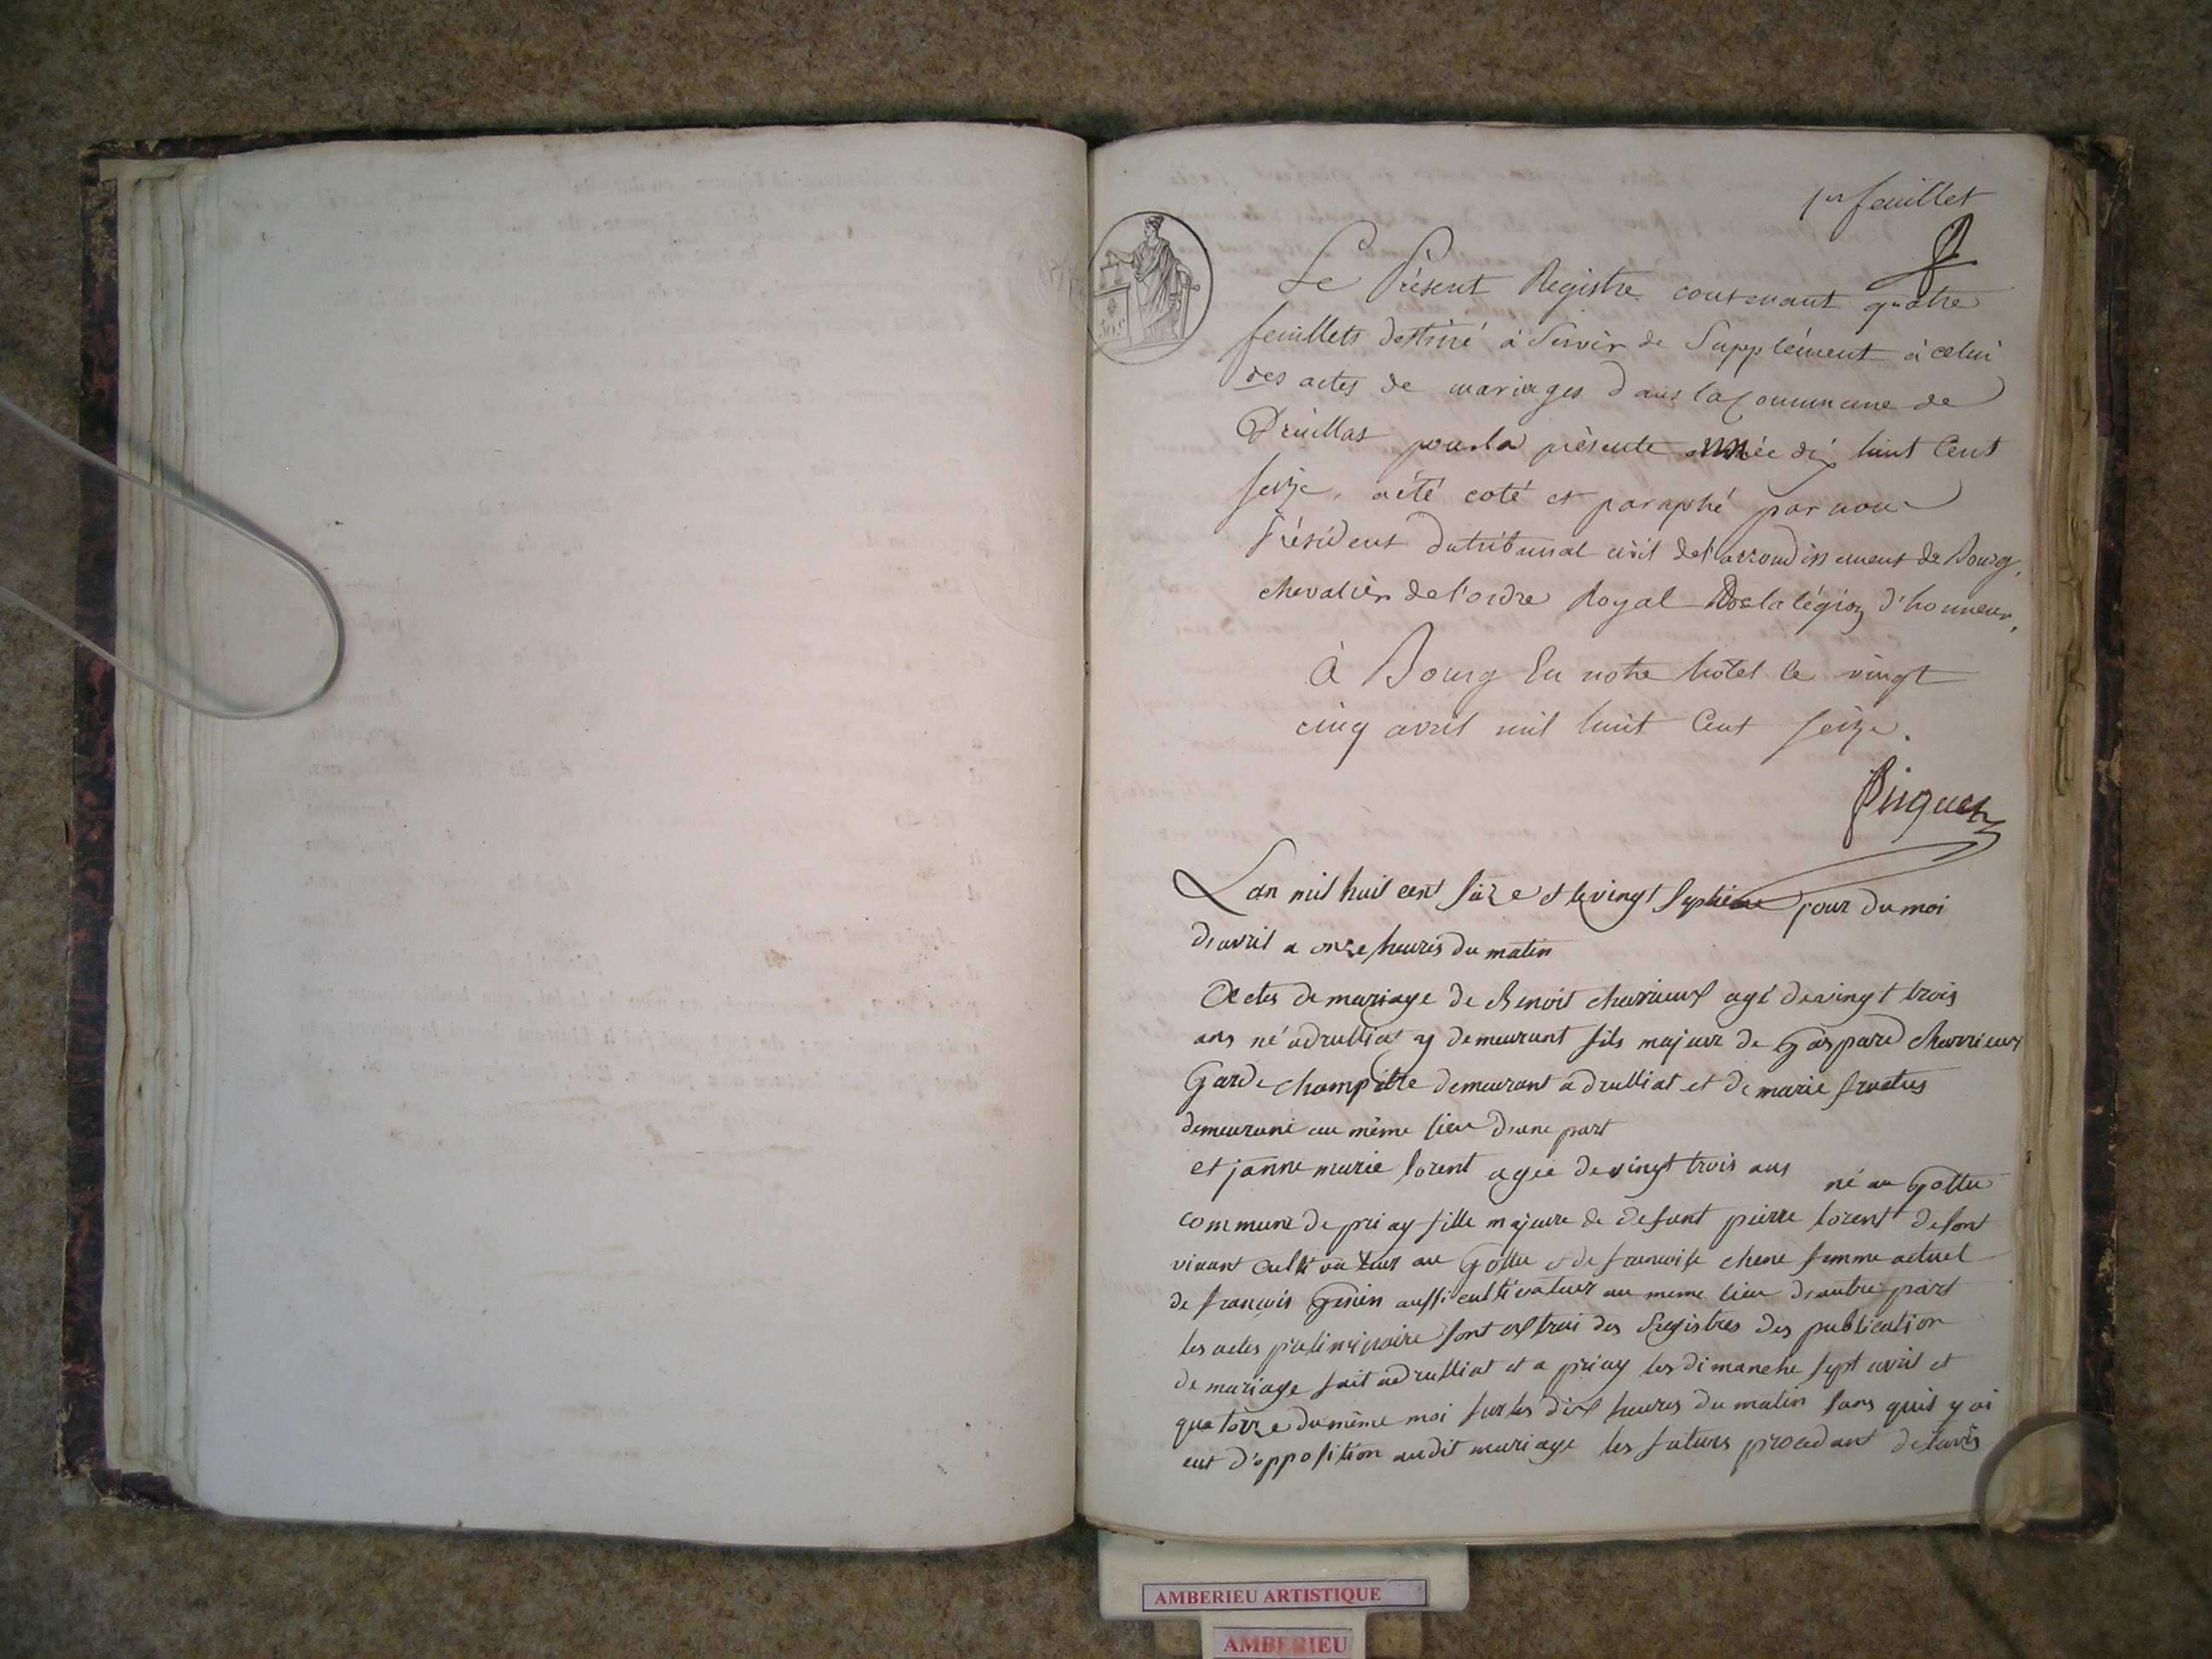 1er feuillet
Le Présent Registre contenant quatre
feuillets destiné à Servir de Supplément à celui
des actes de mariages dans la Commune de
Druillat pour la présente année dix huit Cent
seize, a été coté et paraphé par nous
Président du tribunal civil de l'arrondissement de Bourg,
chevalier de l'ordre Royal De la légion d'honneur,
à Bourg En notre hôtel le vingt
cinq avril mil huit Cent seize.
Lan mil huit cent saize et le vingt septieme jour du moi
d'avril a onze heures du matin
Actes de mariage de Benoit charrieux agé de vingt trois
ans né a drulliat y demeurant fils majeur de Gaspard charrieux
Garde champêtre demeurant a drulliat et de marie
demeurant au même lieu d'une part
et janne marie lorent agée de vingt trois ans né au Gottu
commune de priay fille majeure de defunt pierre lorent de sont
vivant cultivateur au Gottu et de francoise chene femme actuel
de françois Genin aussi cultivateur au meme lieu d'autre part
les actes préliminaire sont extrai des Registres des publication
de mariage fait a drulliat et a priay les dimanche sept avril et
quatorze du même moi sur les dix heures du matin sans quil y ai
eut d'opposition audit mariage les futurs procedant de lavis
308
AMBERIEU ARTISTIQUE
AMBERIEU